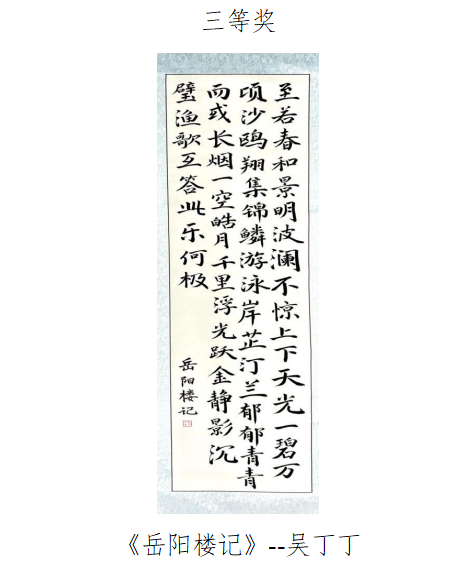 三等奖
至若春和景明波澜不惊上下天光一碧万
顷沙鸥翔集锦鳞游泳岸芷汀兰郁郁青青
而或长烟一空皓月千里浮光跃金静影沉
璧渔歌互答此乐何极
岳阳楼记
《岳阳楼记》--吴丁丁